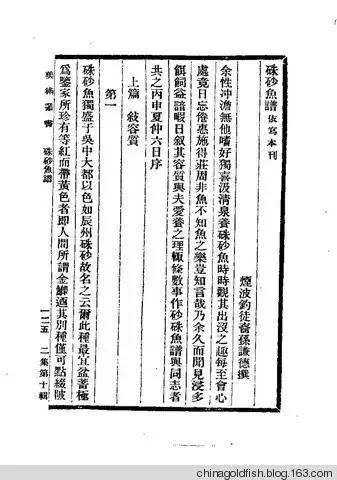 硃砂魚譜 依寫本刊
煙波釣徒裔孫謙德撰
余性冲澹無他嗜好獨喜汲清泉養硃砂魚時時觀其出沒之趣每至會心
處竟日忘倦惠施得莊周非魚不知魚之樂豈知言哉乃余久而聞見浸多
餌飼益諳暇日敘其容質與夫愛養之理輒條數事作硃砂魚譜與同志者
共之丙申夏仲六日序
上篇 敘容質
第一
硃砂魚獨盛于吳中大都以色如辰州硃砂故名之云爾此種最宜盆蓄極
為鑒家所珍有等紅而帶黃色者即人間所謂金鯽迺其別種僅可點綴陂
美術叢書 硃砂魚譜
一二五 二集第十輯
chinagoldfish.blog.163.com